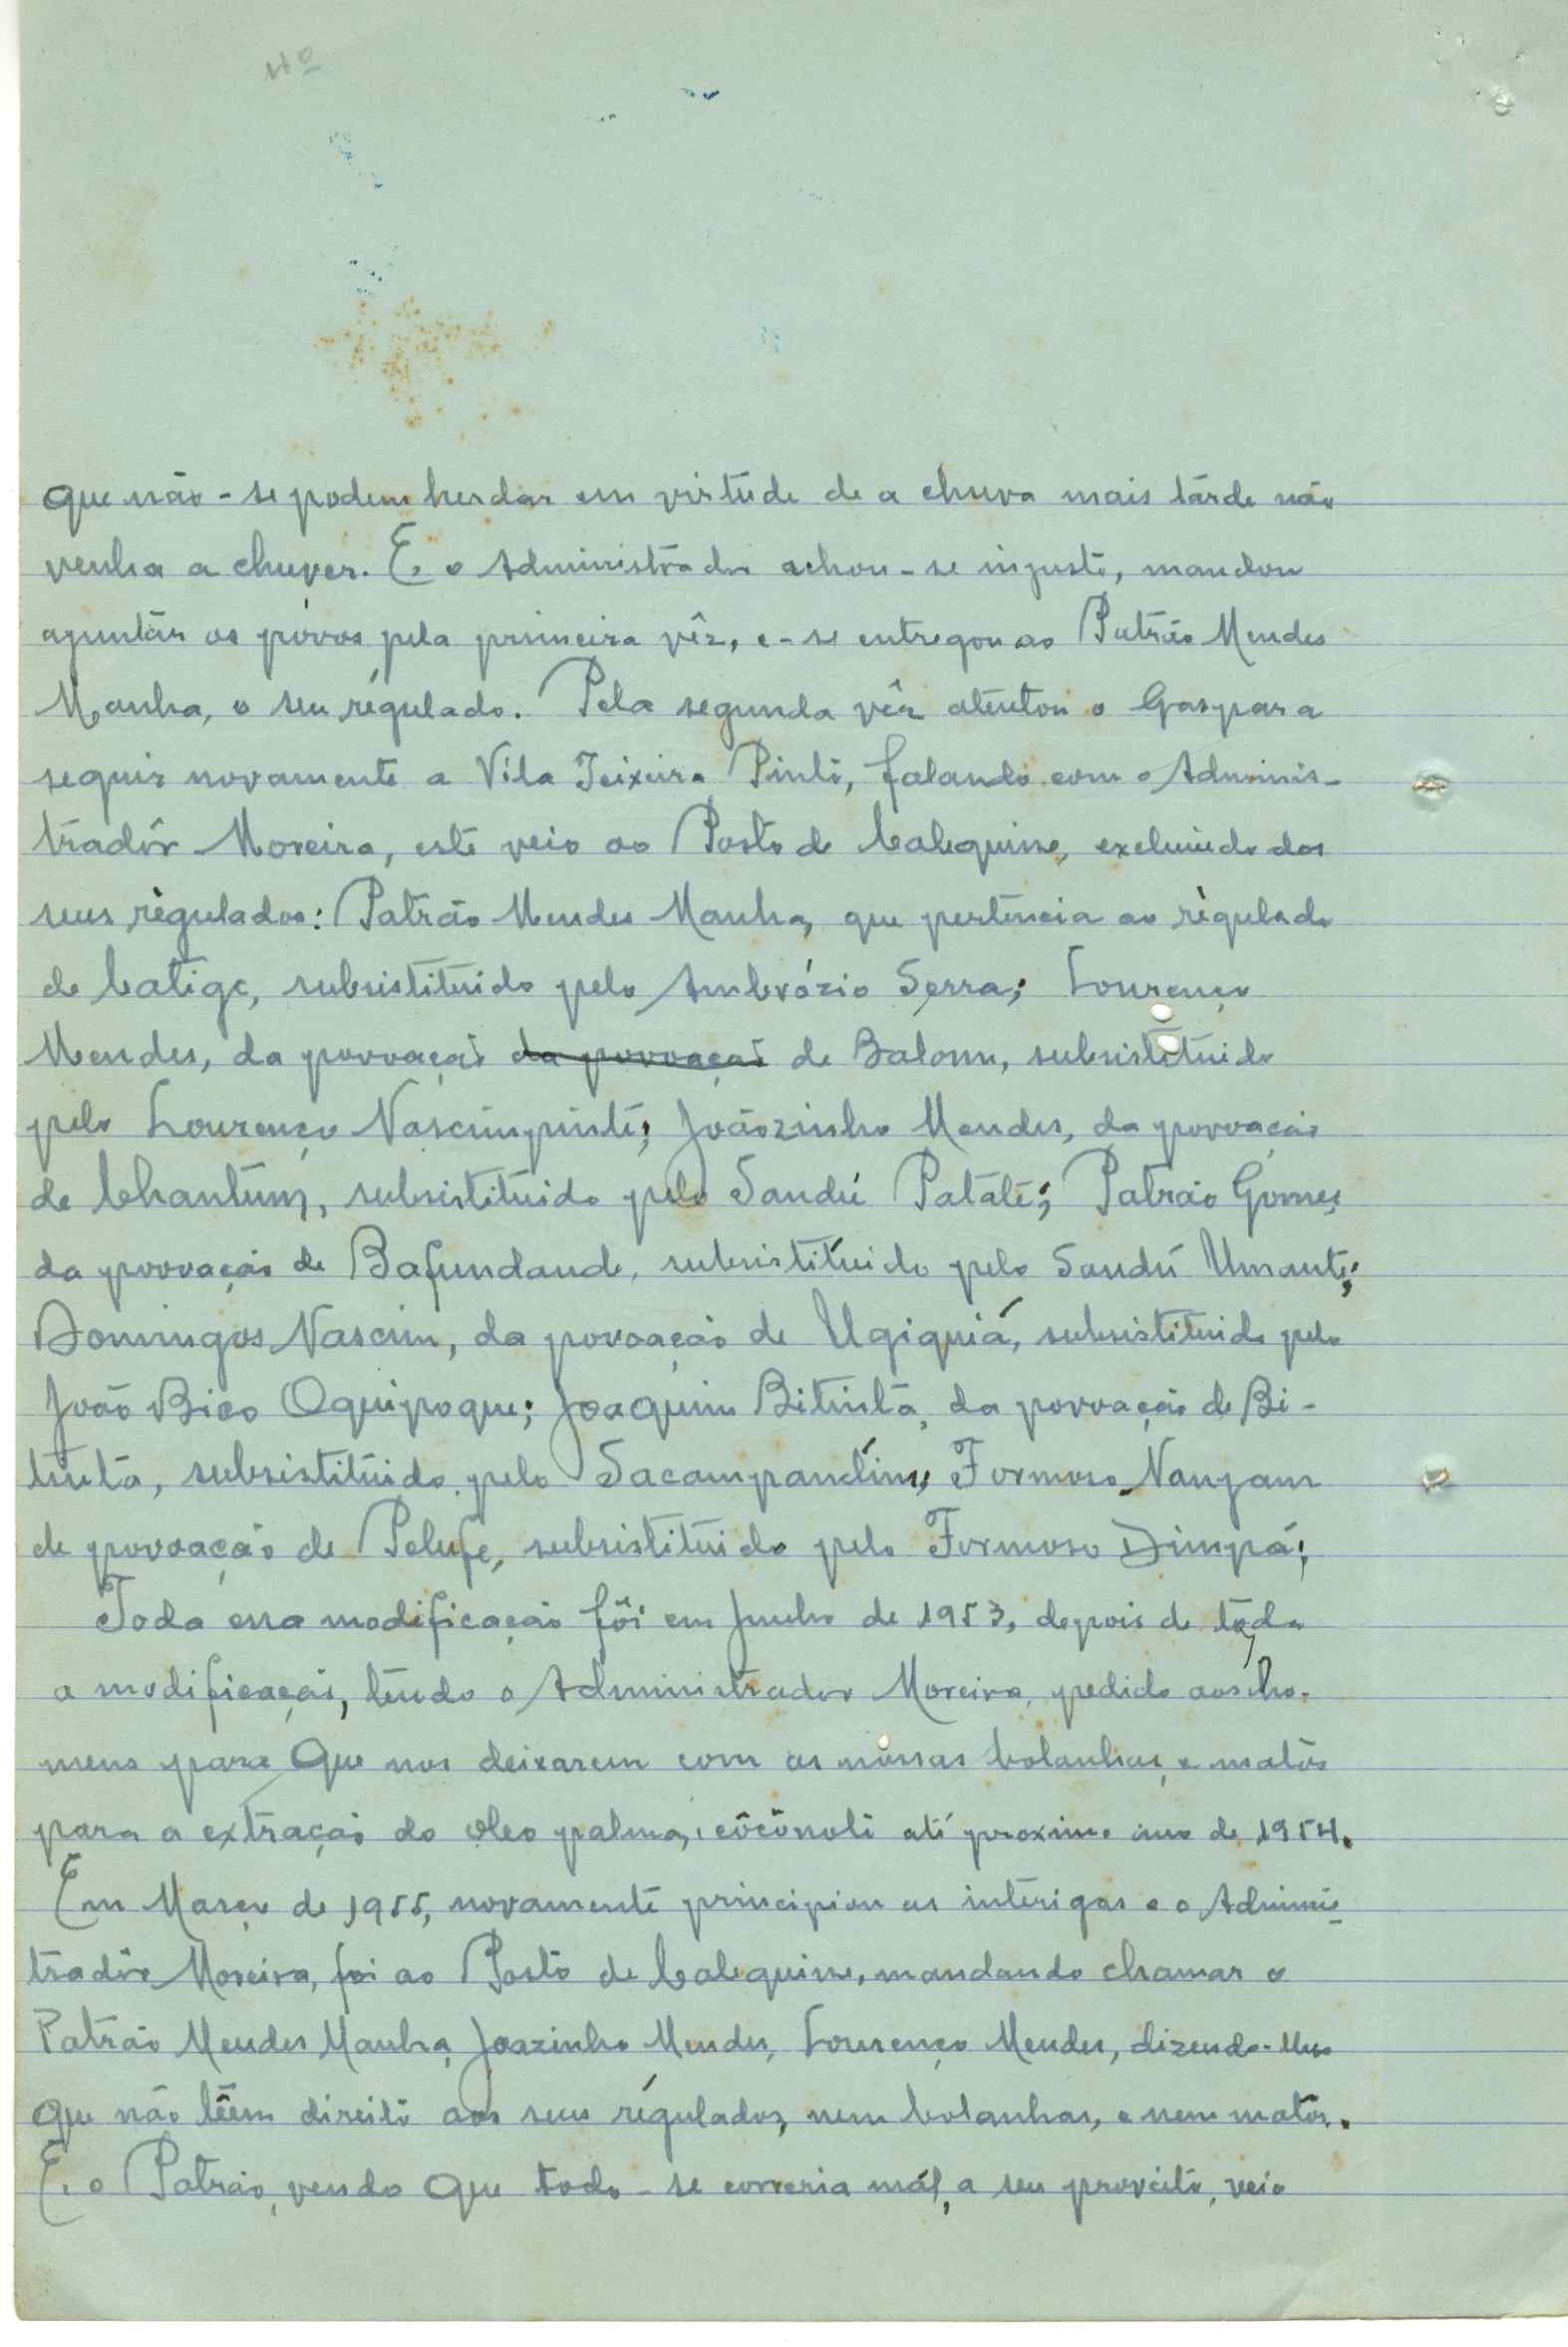 Nº
que não-se podem herdar em virtude de a chuva mais tarde não
venha a chuver. E, o Administrador achou-se injusto, mandou
ajuntar os póvos pela primeira vêz, e-se entregou ao Patrão Mendes
Manha, o seu régulado. Pela segunda vêz atentou o Gaspar a
seguir novamente a Vila Teixeira Pinto, falando com o Adminis-
tradôr Moreira, este veio ao Posto de Calequisse, excluindo dos
seus règulados: Patrão Mendes Manha, que pertencia ao règulado
de Catige, subsistituido pelo Ambrózio Serra; Lourenço
Mendes, da povoação da povoação de Balomm, subsistituido
pelo Lourenço Nascimpinte; Joãozinho Mendes, da povoação
de Chantum, subsistituido pelo Sandú Patate; Patrão Gomes
da povoação de Bafundande, subsistítuido pelo Sandú Umante;
Domingos Nascim, da povoação de Ugiquiá, subsistituido pelo
João Bico Oquipoque; Joaquim Bitinta, da povoação de Bi-
tinta, subsistituido pelo Sacampandím; Formoso Nanjam
de povoação de Pelufe, subsistituido pelo Formoso Dimpá;
Toda essa modificação fôi em Junho de 1953, depois de toda
a modificação, tendo o Administrador Moreira, pedido aos ho-
mens para que nos deixarem com as nossas bolanhas, e matos
para a extração do oleo palma, côcônoti até proximo ano de 1954.
Em Março de 1955, novamente principiou as interigas e o Adminis-
tradôr Moreira, foi ao Posto de Calequisse, mandando chamar o
Patrão Mendes Manha, Joazinho Mendes, Lourenço Mendes, dizendo-lhes
que não têem direito aos seus régulados, nem bolanhas, e nem matos.
E, o Patrão, vendo que todo-se correria mál, a seu proveito, veio